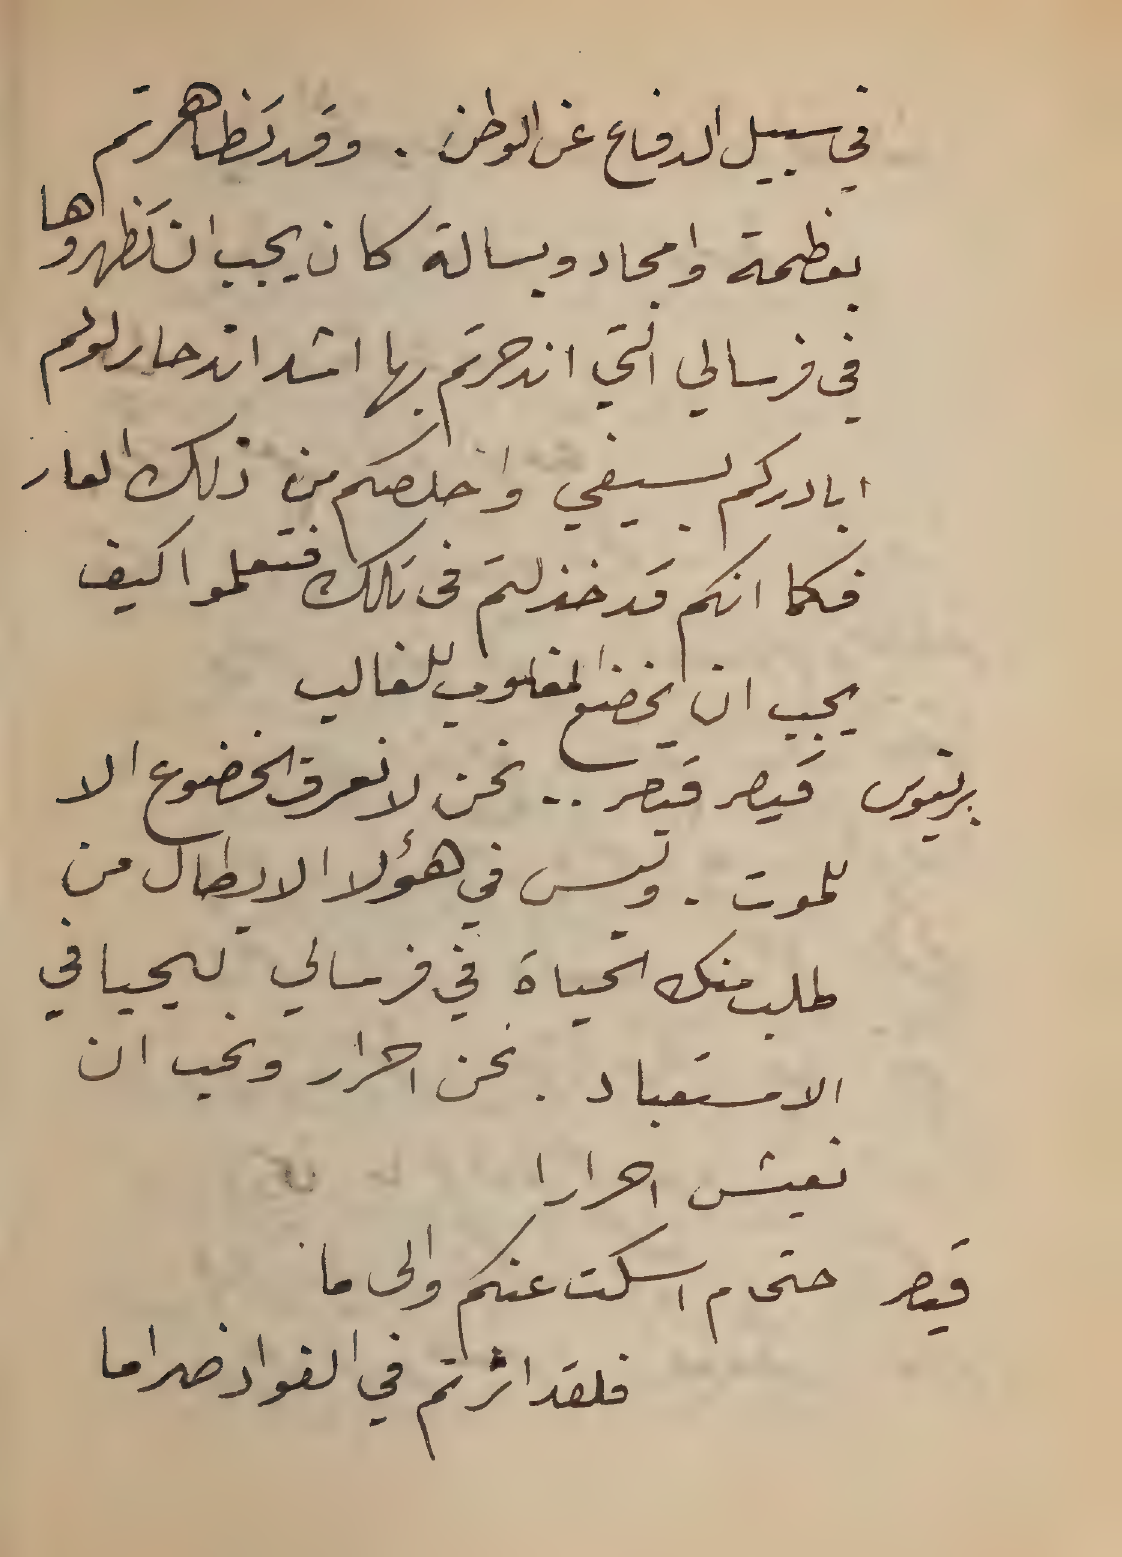 في سبيل الدفاع عن الوطن . وقد تظاهرتم
بعظمة وامجاد وبسالة كان يجب ان تظهروها
في فرسالي التي اندحرتم بها اشد اندحار لولم
ابادركم بسيفي واخلصكم من ذلك العار
فكما انكم قد خذلتم في تلك فتعلموا كيف
يجب ان يخضع المغلوب للغالب
برتيوس قيصر قيصر .. نحن لا نعرف الخضوع الا
للموت . وليس في هؤلا الابطال من
طلب منك الحياة في فرسالي ليحيا في
الاستعباد . نحن احرار ونحب ان
نعيش احرارا
قيصر حتى م اسكت عنكم والى ما
فلقد اثرتم في الفواد ضراما